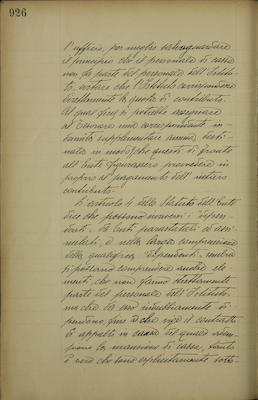 926
l'ufficio, per meglio salvaguardare
il principio che il personale di cassa
non fa parte del personale dell'Istitu-
to, evitare che l'Istituto corrisponda
direttamente la quota di contributo.
Al qual fine si potrebbe assegnare
al Tesoriere una corrispondente in-
dennità supplementare annua, desti-
nata in modo che questi di fronte
all'Ente figurasse provvedere in
proprio al pagamento dell'intero
contributo.
L'articolo 4 dello Statuto dell'Ente
dice che possono iscriversi i dipen-
denti da Enti parastatali od assi-
milati, e nella larga comprensione
della qualifica, dipendenti, sembra
si possano comprendere anche ele-
menti che non fanno strettamente
parte del personale dell'Istituto,
ma che da esso indubbiamente di-
pendono, fino a che vige il contratto
di appalto in del quale
le mansioni di cassa, tanto
è vero che sono esplicitamente sotto-